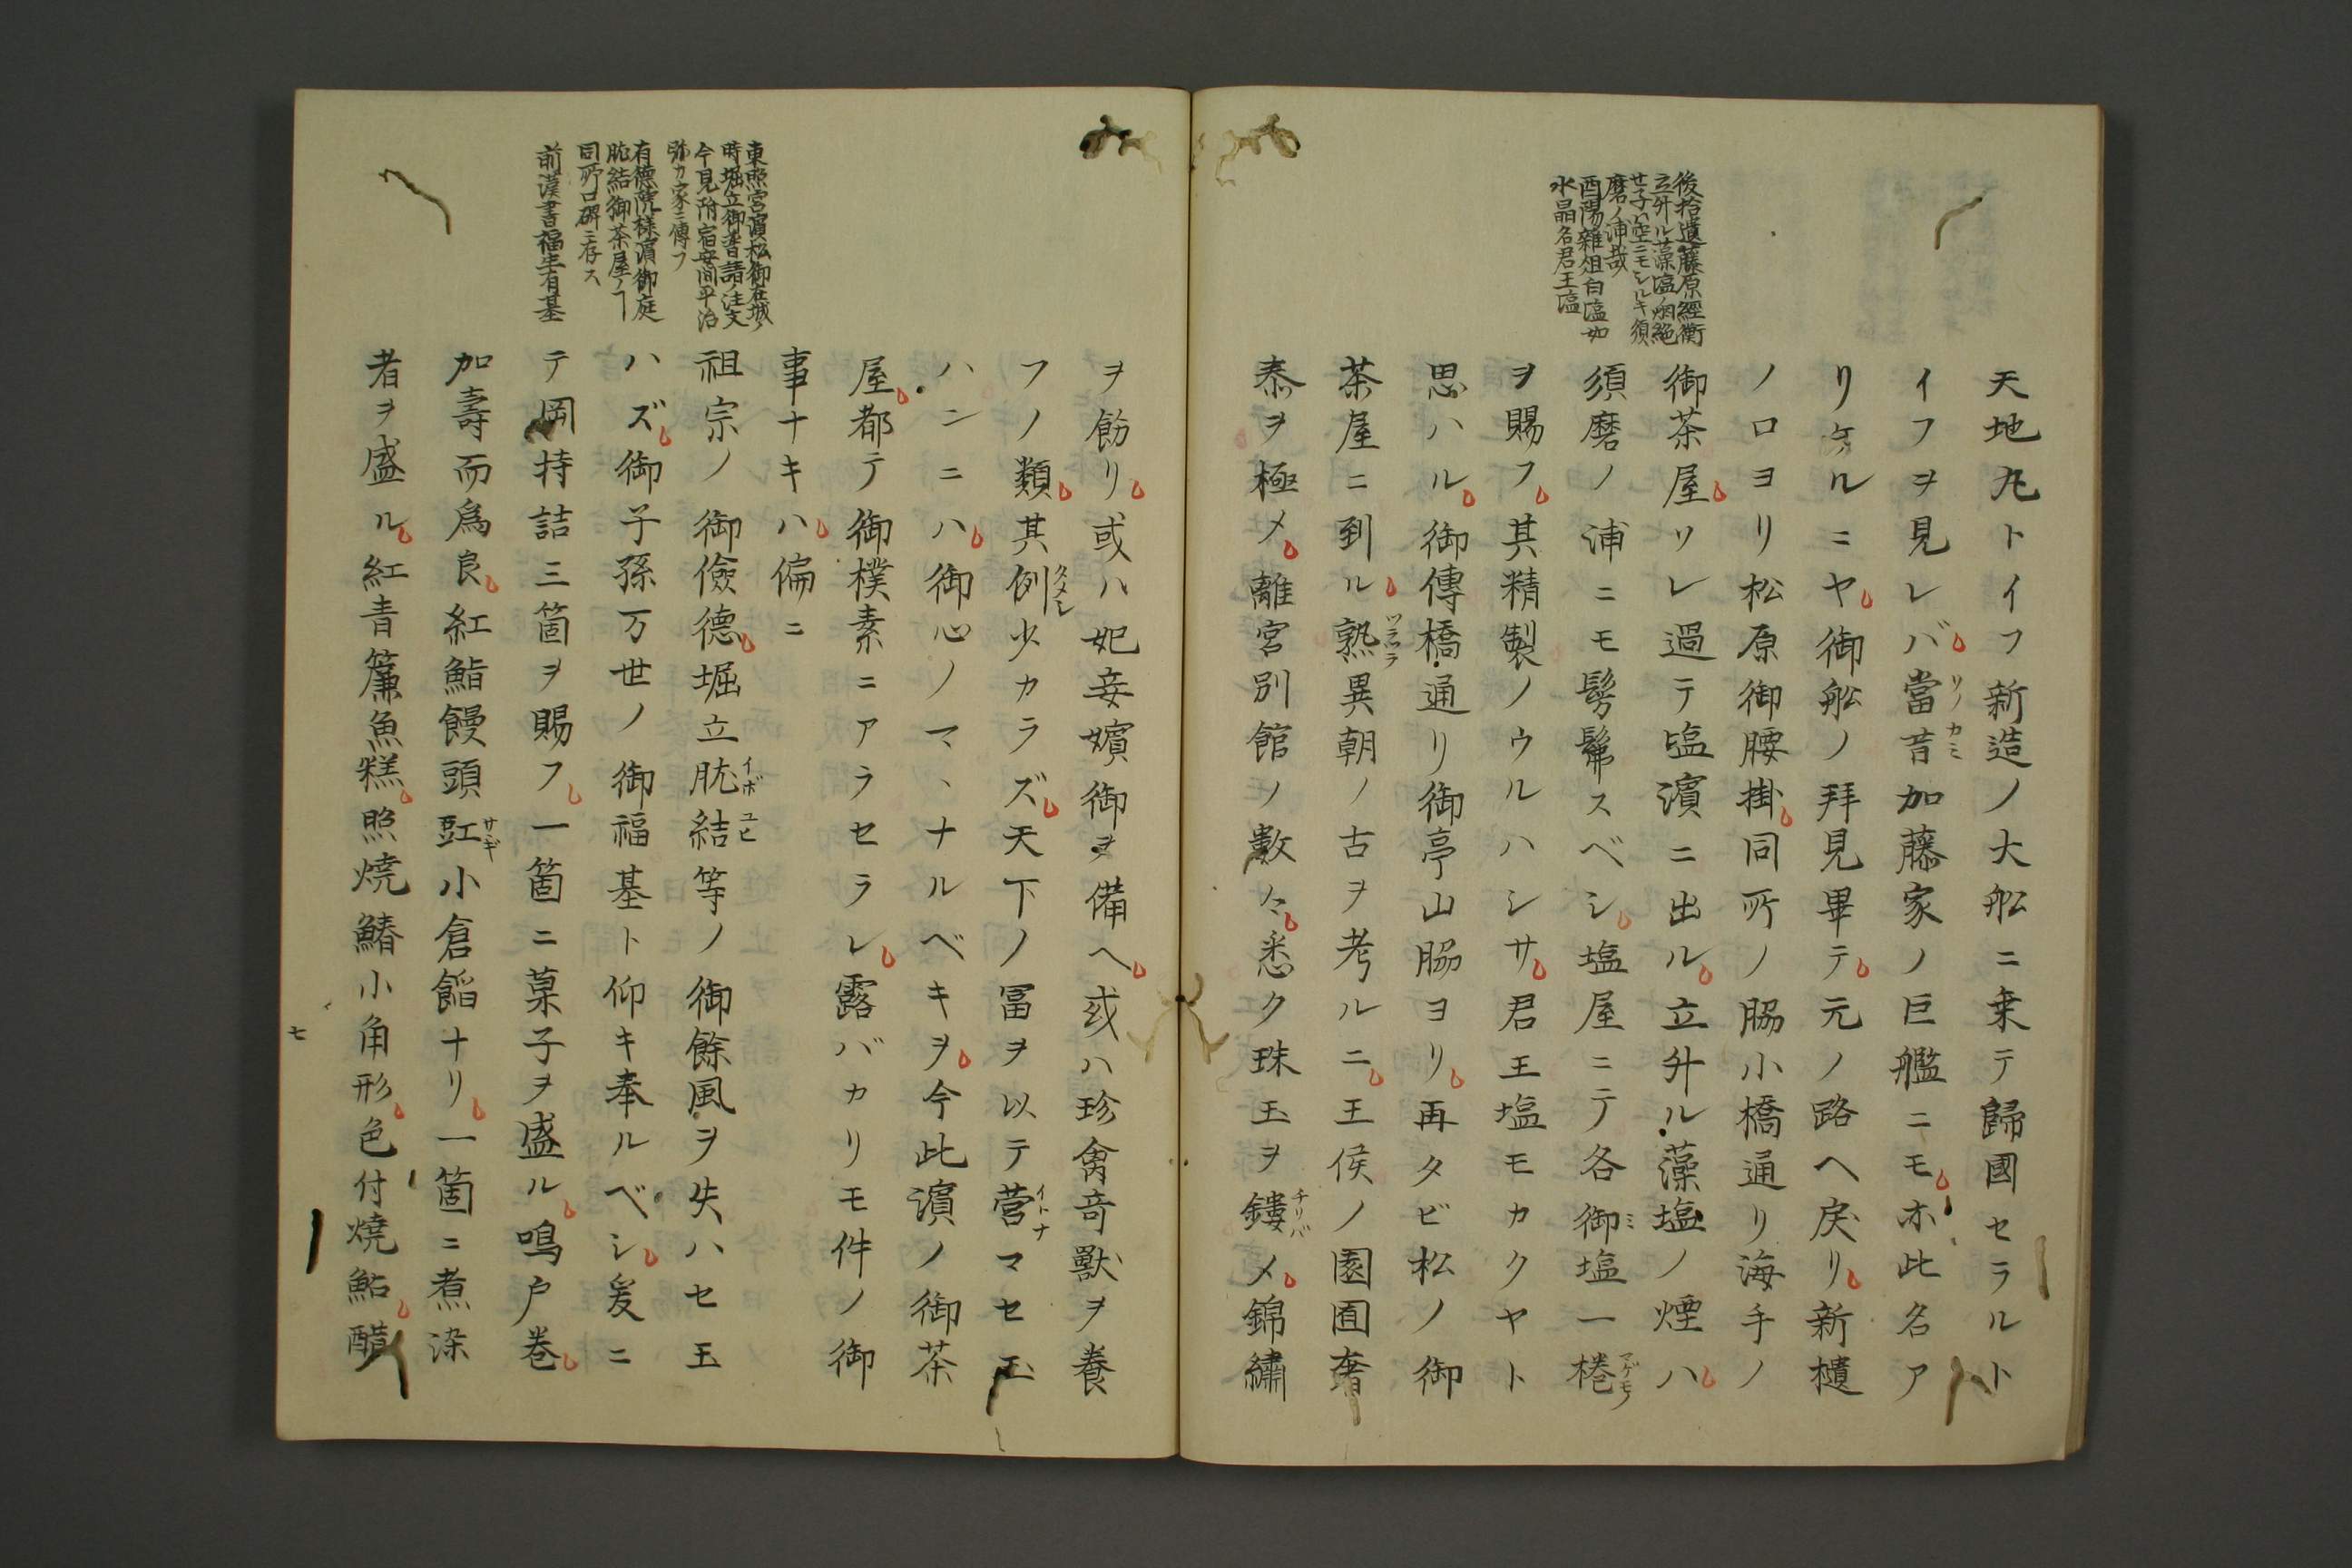 後拾遺藤原經衡
立升ル藻塩ノ烟絶
セ子ハ空ニモシルキ須
磨ノ浦哉
酉陽雑俎白塩如
水晶名君王塩
天地丸トイフ新造ノ大舩ニ乗テ歸國セラルト
イフヲ見レバ當昔加藤家ノ巨艦ニモ亦此名ア
リケルニヤ御舩ノ拜見畢テ元ノ路ヘ戻リ新樻
ノロヨリ松原御腰掛同所ノ脇小橋通リ海手ノ
御茶屋ソレ過テ塩濱ニ出ル立升ル藻塩ノ煙ハ
須磨ノ浦ニモ髣髴スベシ塩屋ニテ各御塩一棬
ヲ賜フ其精製ノウルハシサ君王塩モカクヤト
思ハル御傳橋通リ御亭山脇ヨリ再タビ松ノ御
茶屋ニ到ル熟異朝ノ古ヲ考ルニ王侯ノ園囿奢
泰ヲ極メ離宮別館ノ數々悉ク珠玉ヲ鏤メ錦繡
東照宮濱松御在城ノ
時堀立御普請ノ注文
今見附宿安間平治
弥カ家ニ傳フ
有徳院様濱御庭
肬結御茶屋ノ
同所口碑ニ存ス
前漢書福生有基
ヲ飭リ或ハ妃妾嬪御ヲ備ヘ或ハ珍禽竒獸ヲ養
フノ類其例少カラズ天下ノ冨ヲ以テ營マセ玉
ハンニハ御心ノマヽナルベキヲ今此濱ノ御茶
屋都テ御樸素ニアラセラレ露バカリモ件ノ御
事ナキハ偏ニ
祖宗ノ御儉德堀立肬結等ノ御餘風ヲ失ハセ玉
ハズ御子孫万世ノ御福基ト仰キ奉ルベシ爰ニ
テ岡持詰三箇ヲ賜フ一箇ニ菓子ヲ盛ル鳴戸巻
加壽而爲良紅鮨饅頭豇小倉餡ナリ一箇ニ煮染
者ヲ盛ル紅青簾魚糕照燒鰆小角形色付燒鮎醋
七